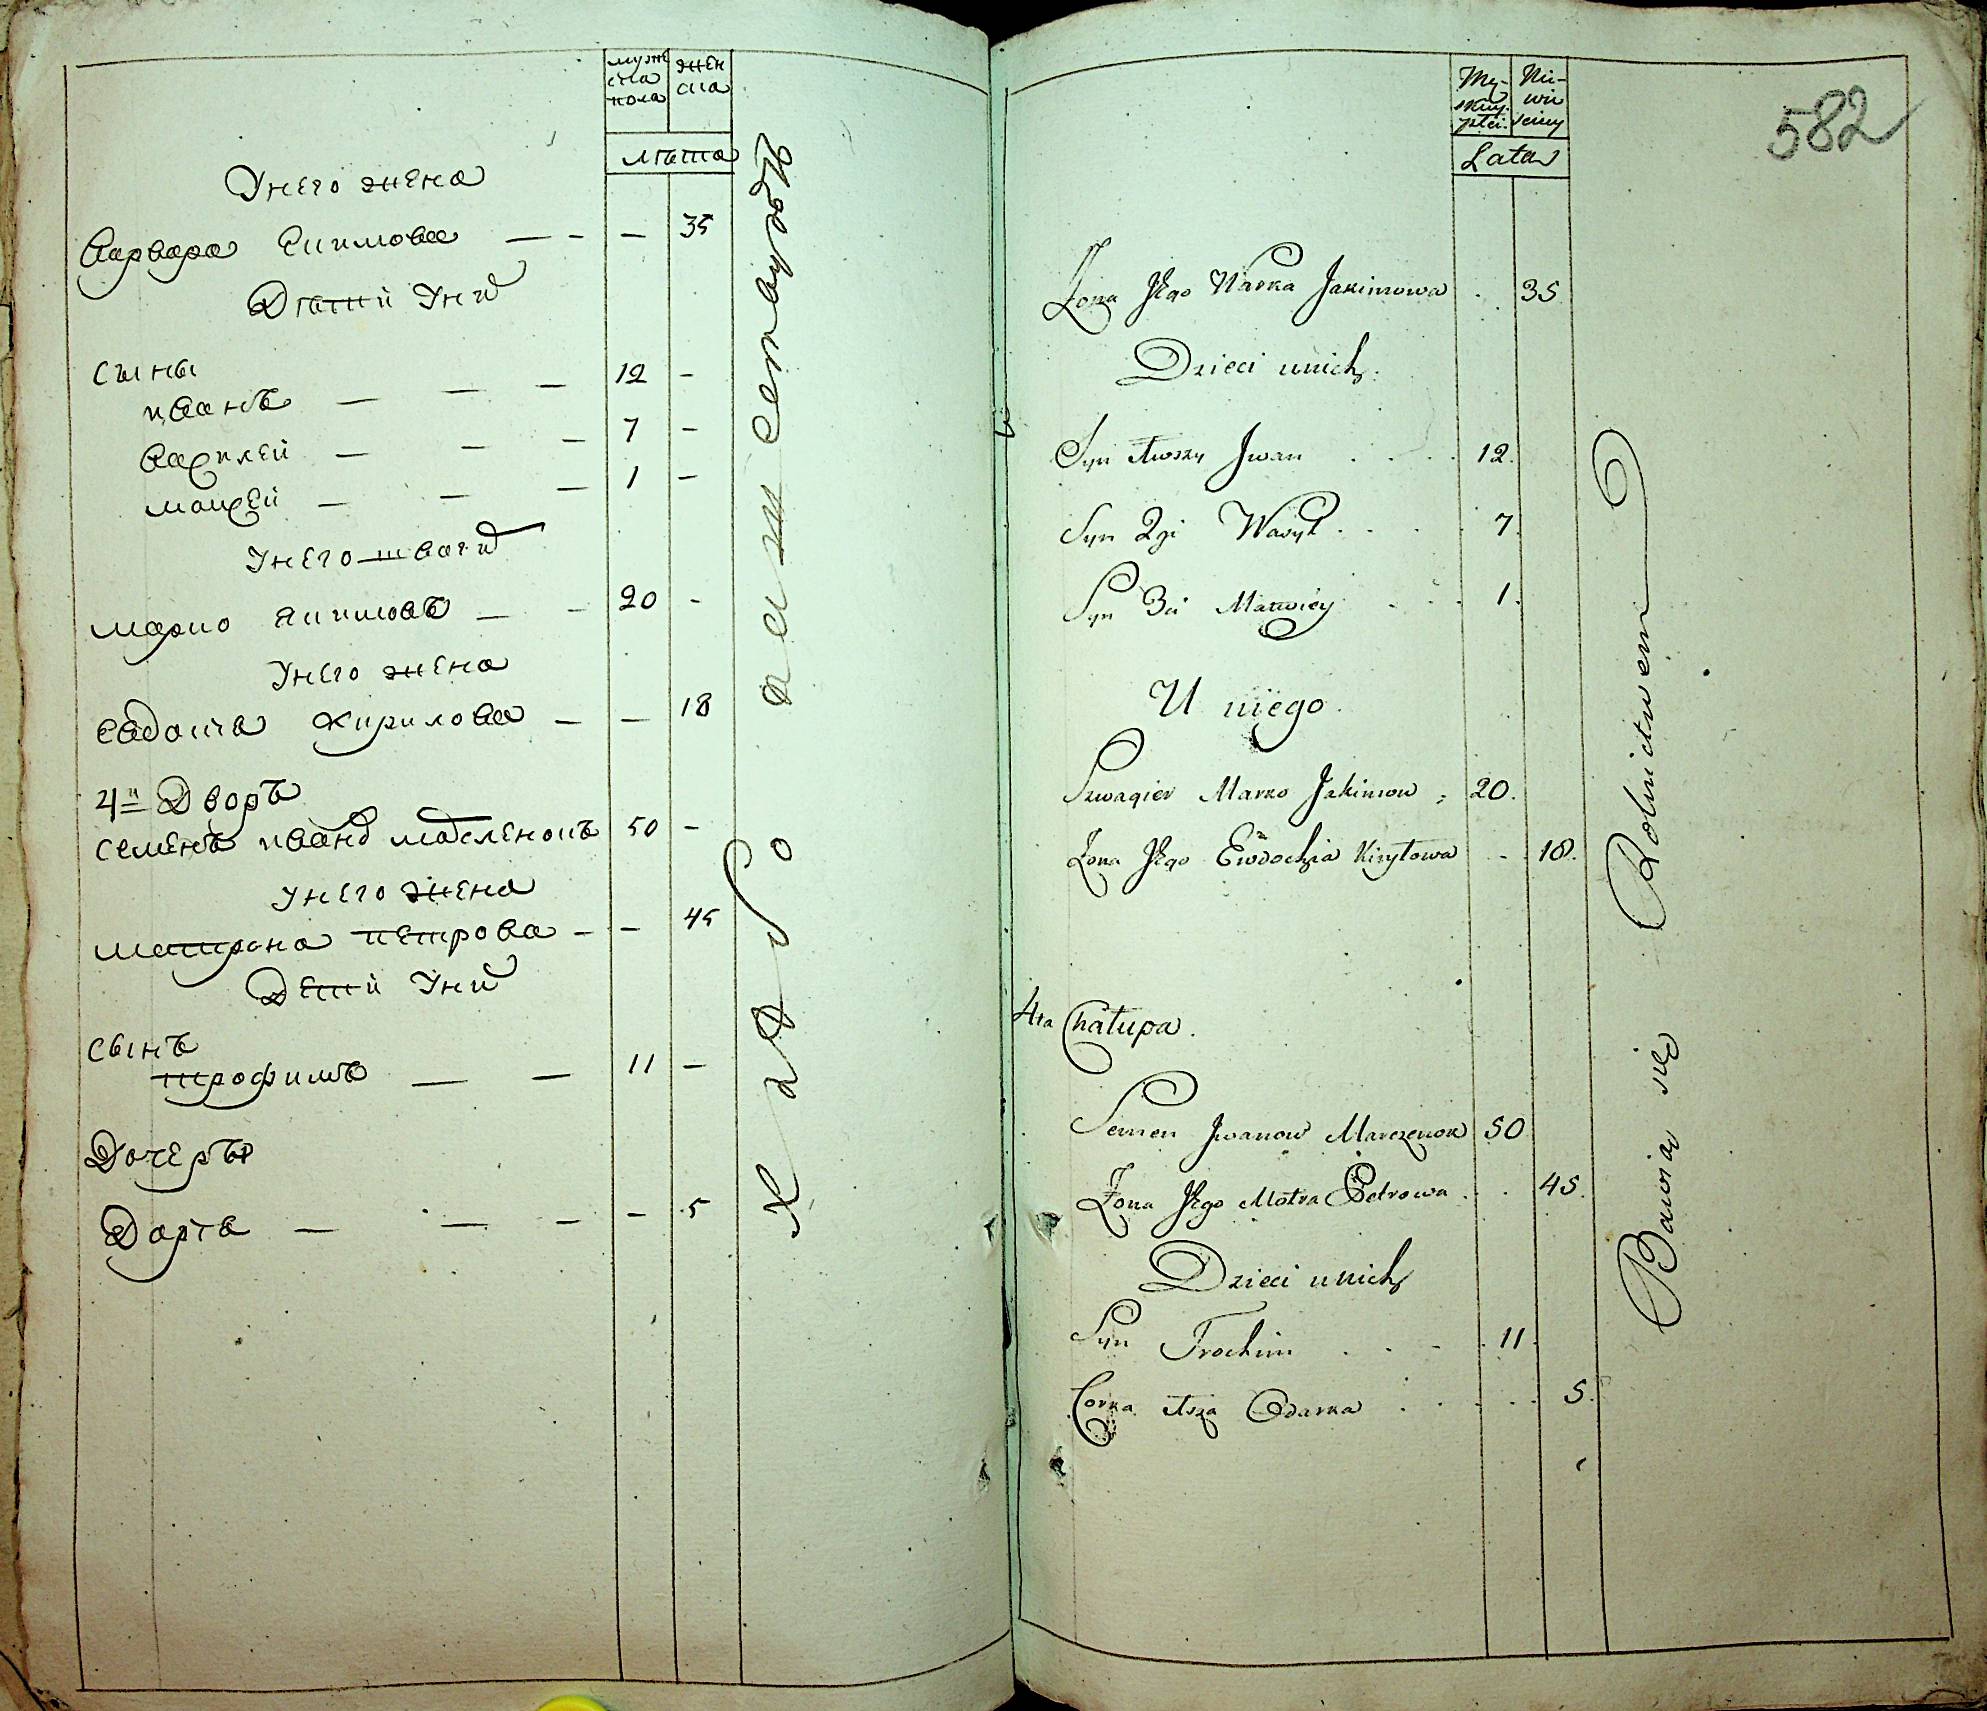 муж
ска
пола
жен
ска
лѣта
Унего жена
варвара Екимова — - — 35
Дѣтий Уних
сыны
иванъ — — — 12 -
василей — — — 7 -
матвей — — — 1 -
Унего швагир
марко якимовъ — - 20 -
Унего жена
Евдотя Кирилова — — 18
4й Дворъ
семенъ иванов 50 -
Унего жена
матрона петрова - - 45
Детий Уних
сынъ
трофимъ — — 11 -
Дочеръ
Даря — — — - 5
Хлебопашествують
582
Mę-
skiey
płci
Nie-
wie
sciey
Lata
Żona Jego Warka Jakimowa . 35
Dzieci unich.
Syn Awszy Jwan . . . 12.
Syn 2gi Wasyl . . . . 7
Syn 3ci Matwiey . . . 1.
U niego.
Szwagier Marko Jakimow ; 20.
Żona Jego Ewdochia Kiryłowa . . 18.
4ta Chałupa.
Semen Jwanow Marczenok 50
Żona Jego Motra Petrowa . . 45.
Dzieci unich
Syn Trochim . . - . 11.
Corka Odarka . . . . . 5.
Bawią się Rolnictwem